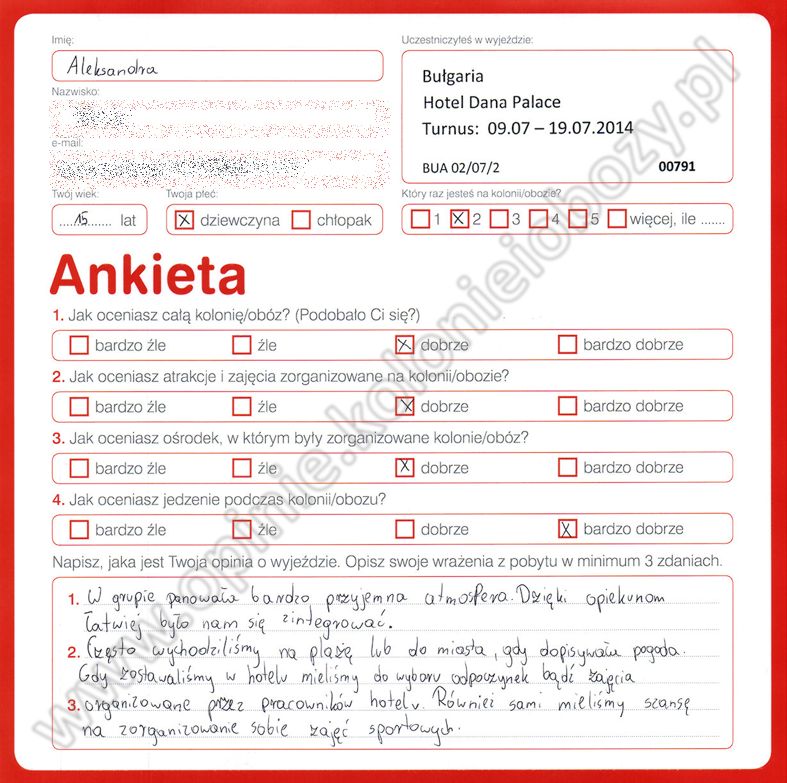 Imię:
Aleksandra
Nazwisko:
e-mail:
Twój wiek:
15 lat
Twoja płeć:
dziewczyna chłopak
Uczestniczyłeś w wyjeździe:
Bułgaria
Hotel Dana Palace
Turnus: 09.07 – 19.07.2014
BUA 02/07/2 00791
Który raz jesteś na kolonii/obozie?
1 2 3 4 5 więcej, ile .......
Ankieta
1. Jak oceniasz całą kolonię/obóz? (Podobało Ci się?)
bardzo źle źle dobrze bardzo dobrze
2. Jak oceniasz atrakcje i zajęcia zorganizowane na kolonii/obozie?
bardzo źle źle dobrze bardzo dobrze
3. Jak oceniasz ośrodek, w którym były zorganizowane kolonie/obóz?
bardzo źle źle dobrze bardzo dobrze
4. Jak oceniasz jedzenie podczas kolonii/obozu?
bardzo źle źle dobrze bardzo dobrze
Napisz, jaka jest Twoja opinia o wyjeździe. Opisz swoje wrażenia z pobytu w minimum 3 zdaniach.
1. W grupie panowała bardzo przyjemna atmosfera. Dzięki opiekunom
łatwiej było nam się zintegrować.
2. Często wychodziliśmy na plażę lub do miasta, gdy dopisywała pogoda.
Gdy zostawaliśmy w hotelu mieliśmy do wyboru odpoczynek bądź zajęcia
3. organizowane przez pracowników hotelu. Również sami mieliśmy szansę
na zorganizowanie sobie zajęć sportowych.
www.opinie.kolonieiobozy.pl